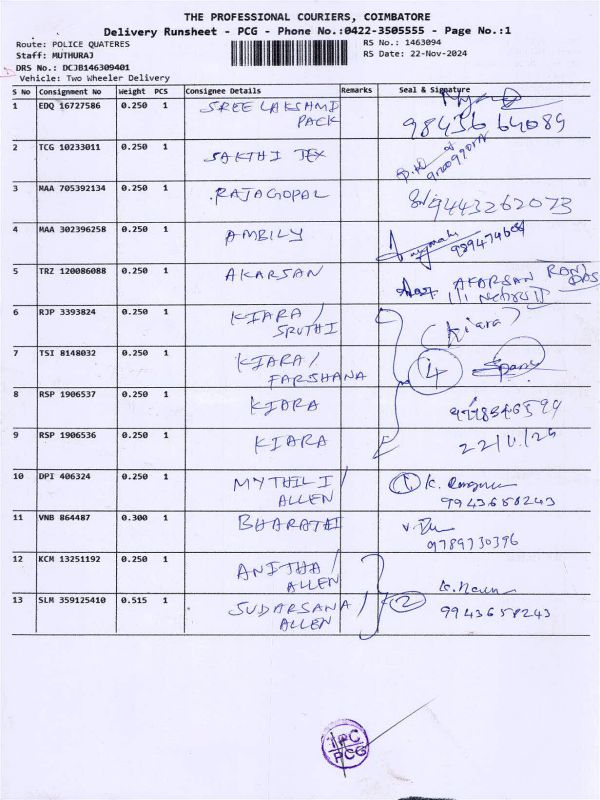 THE PROFESSIONAL COURIERS, COIMBATORE
Delivery Runsheet - PCG - Phone No.:0422-3505555 - Page No.:1
Route: POLICE QUATERES
RS No.: 1463094
Staff: MUTHURAJ
RS Date: 22-Nov-2024
DRS No.: DCJB146309401
Vehicle: Two Wheeler Delivery
S No Consignment No Weight PCS Consignee Details Remarks Seal & Signature
1 EDQ 16727586 0.250 1 SREE LAKSHMI
PACK 98436 64089
2 TCG 10233011 0.250 1 SAKTHI TEX
3 MAA 705392134 0.250 1 RAJAGOPAL 9443262073
4 MAA 302396258 0.250 1 AMBILY
5 TRZ 120086088 0.250 1 AKARSAN AKARSAN
6 RJP 3393824 0.250 1 KIARA / (Kiara)
SRUTHI
7 TSI 8148032 0.250 1 KIARA / 4
FARSHANA
8 RSP 1906537 0.250 1 KIARA
9 RSP 1906536 0.250 1 KIARA 22/11/24
10 DPI 406324 0.250 1 MYTHILI / 1 K.
ALLEN 9943658243
11 VNB 864487 0.300 1 BHARATHI V.
9789730396
12 KCM 13251192 0.250 1 ANITHA /
ALLEN
13 SLM 359125410 0.515 1 SUDARSANA / 2 9943658243
ALLEN
TPC
PCG